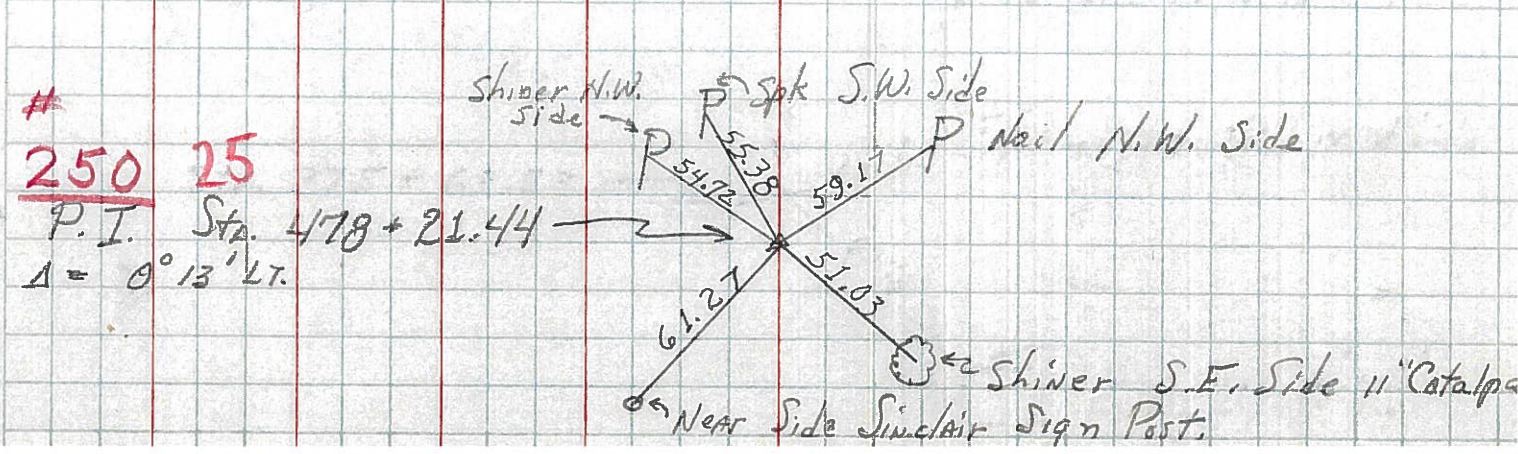 #
250 25
P.I. Sta. 478+21.44
Δ = 0° 13' LT.
Shiner N.W.
Side
P
54.72
P Spk S.W. Side
55.38
P Nail N.W. Side
59.17
51.03
61.27
Shiner S.E. Side 11" Catalpa
Near Side Sinclair Sign Post.